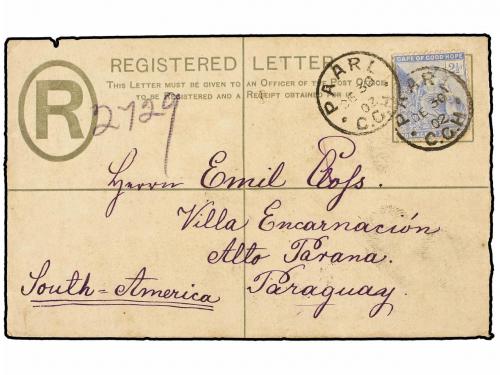 REGISTERED LETTER
THIS LETTER MUST BE GIVEN TO AN OFFICER OF THE POST OFFICE
TO BE REGISTERED AND A RECEIPT OBTAINED FOR IT
R
2729
CAPE OF GOOD HOPE
2½
PAARL
DE 30
02
C.G.H
PAARL
DE 30
02
C.G.H
Herrn Emil
Villa Encarnación
Alto Parana.
South-America
Paraguay.